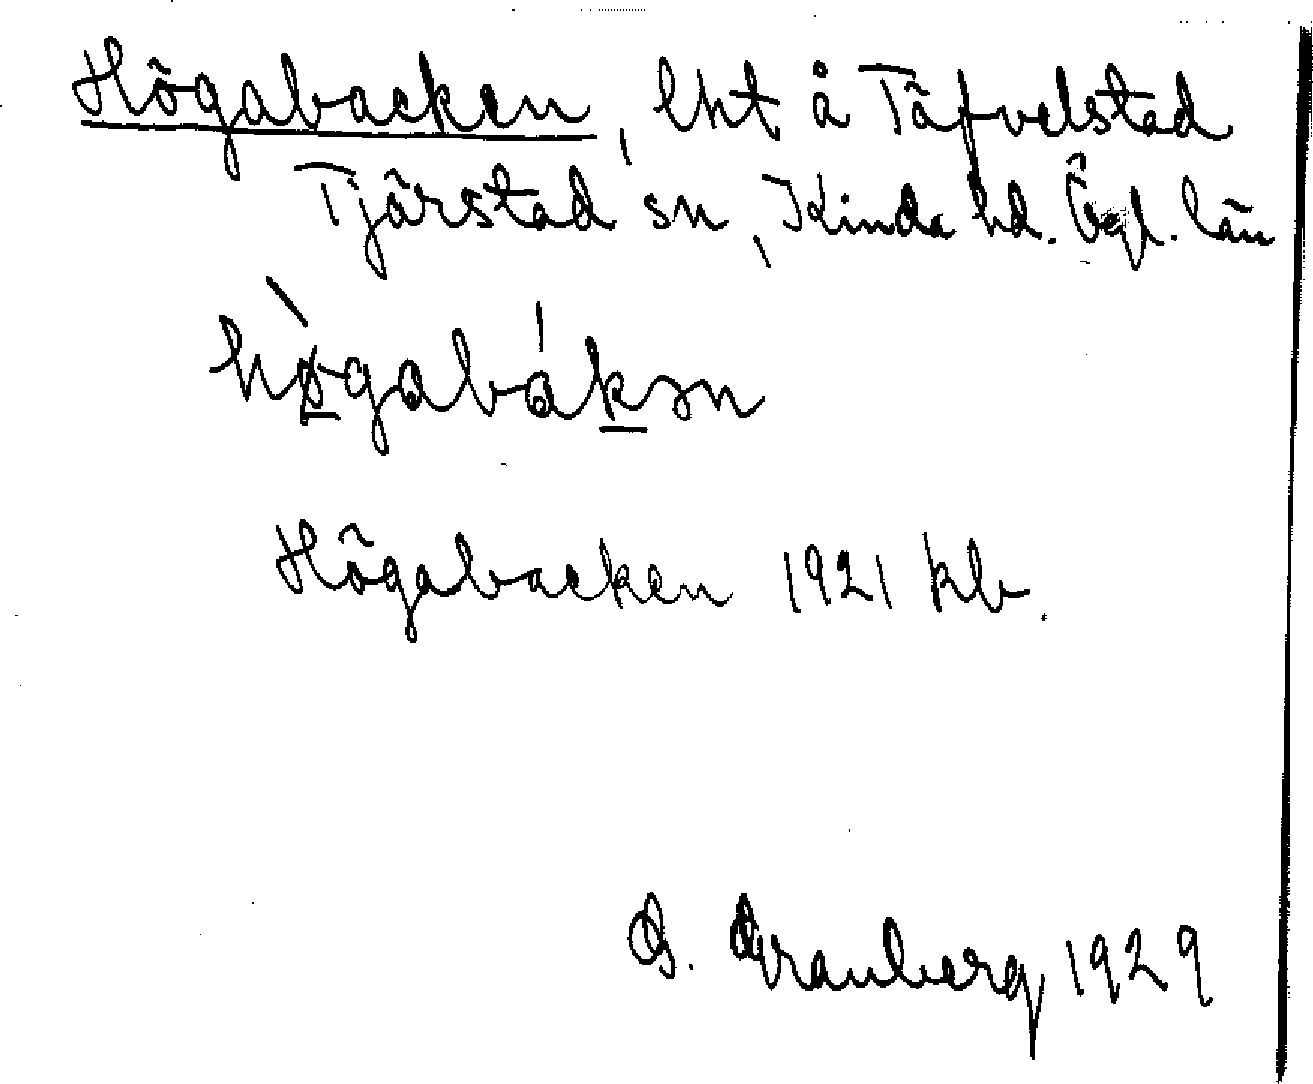 Högabacken, lht å Täfvelstad
Tjärstad sn, Kinda hd. Ögl. län
hø̀gabákən
Högabacken 1921 kb.
G. Granberg 1929